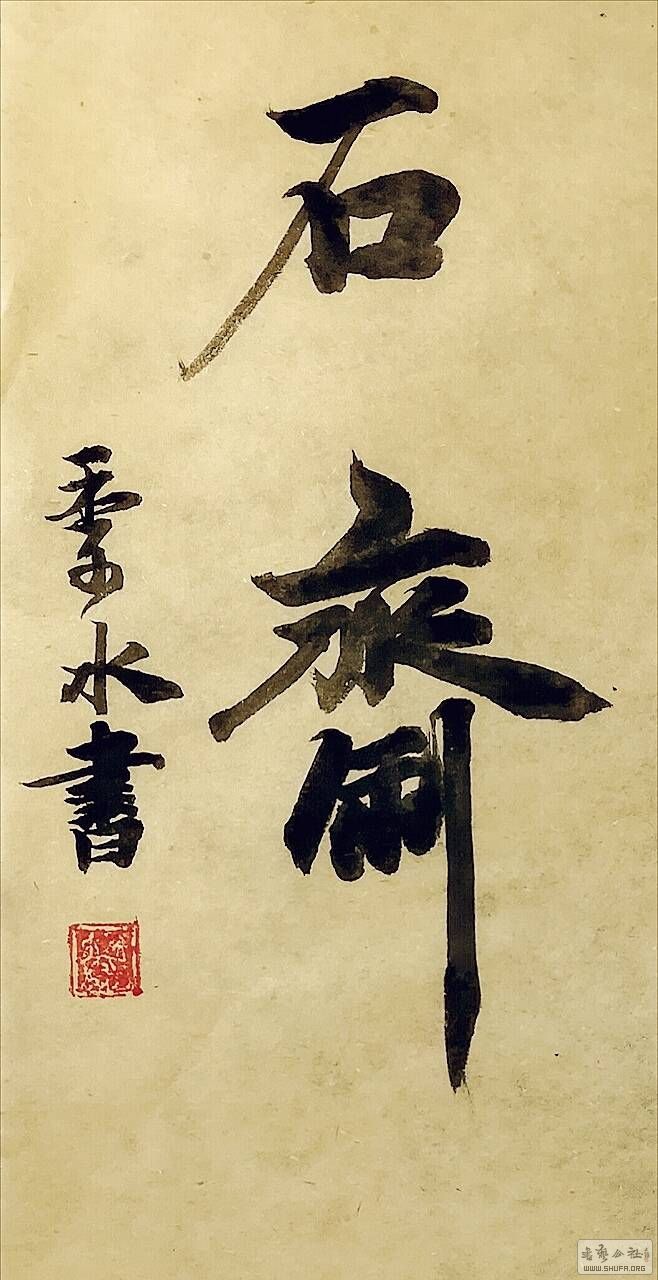 石齋
水書
书艺公社
WWW.SHUFA.ORG